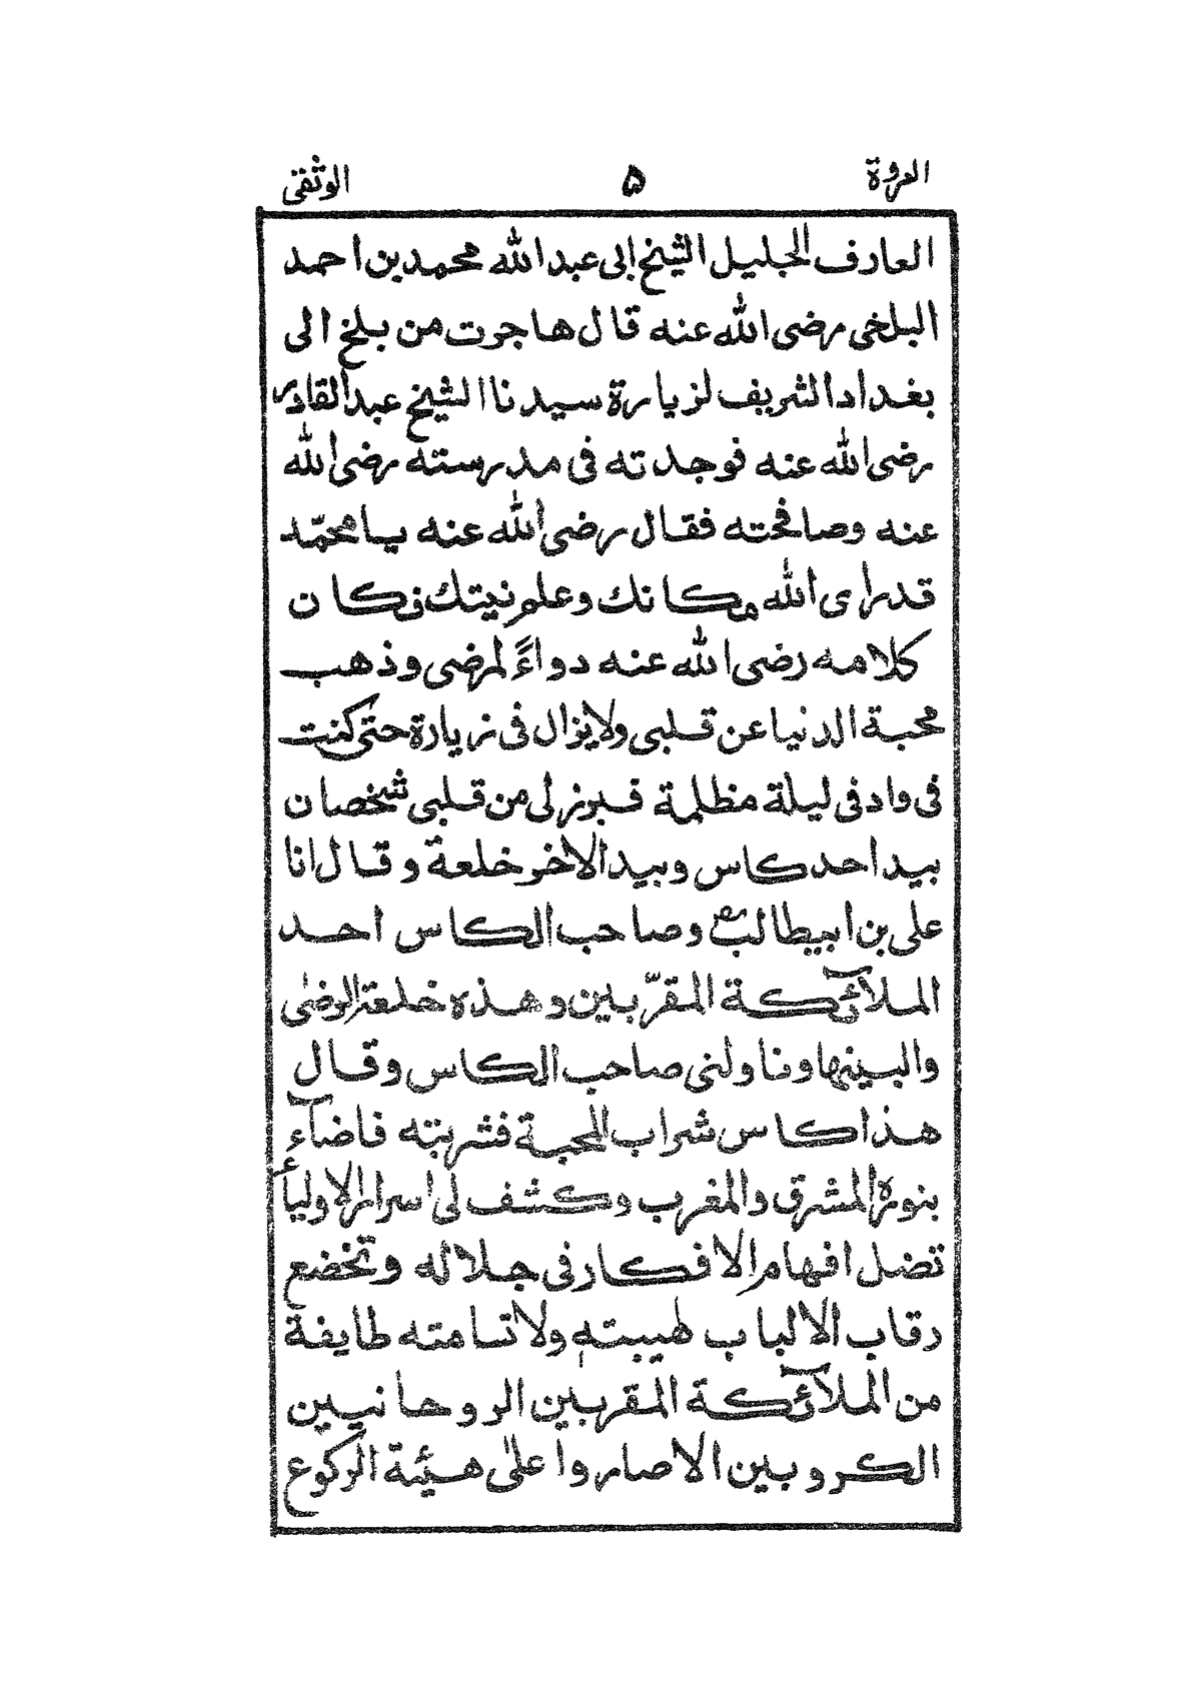 العروة ۵ الوثقى
العارف الجليل الشيخ ابى عبد الله محمد بن احمد
البلخى رضى الله عنه قال هاجرت من بلخ الى
بغداد الشريف لزيارة سيدنا الشيخ عبد القادر
رضى الله عنه فوجدته فى مدرسته رضى الله
عنه وصافحته فقال رضى الله عنه يا محمّد
قد راى الله مكانك وعلم نيتك فكان
كلامه رضى الله عنه دواءً لمرضى وذهب
محبة الدنيا عن قلبى ولا يزال فى زيارة حتى كنت
فى واد فى ليلة مظلمة فبرز لى من قلبى شخصان
بيد احد كاس وبيد الاخر خلعة وقال انا
على بن ابيطالب رض وصاحب الكاس احد
الملآئكة المقرّبين وهذه خلعة الرضى
والبسينها وناولنى صاحب الكاس وقال
هذا كاس شراب المحبة فشربته فاضآء
بنوره المشرق والمغرب وكشف لى اسرار الاولياء
تضل افهام الافكار فى جلاله وتخضع
رقاب الالباب لهيبته ولا تسامته طايفة
من الملآئكة المقربين الروحانيين
الكروبين الا صاروا على هيئة الركوع